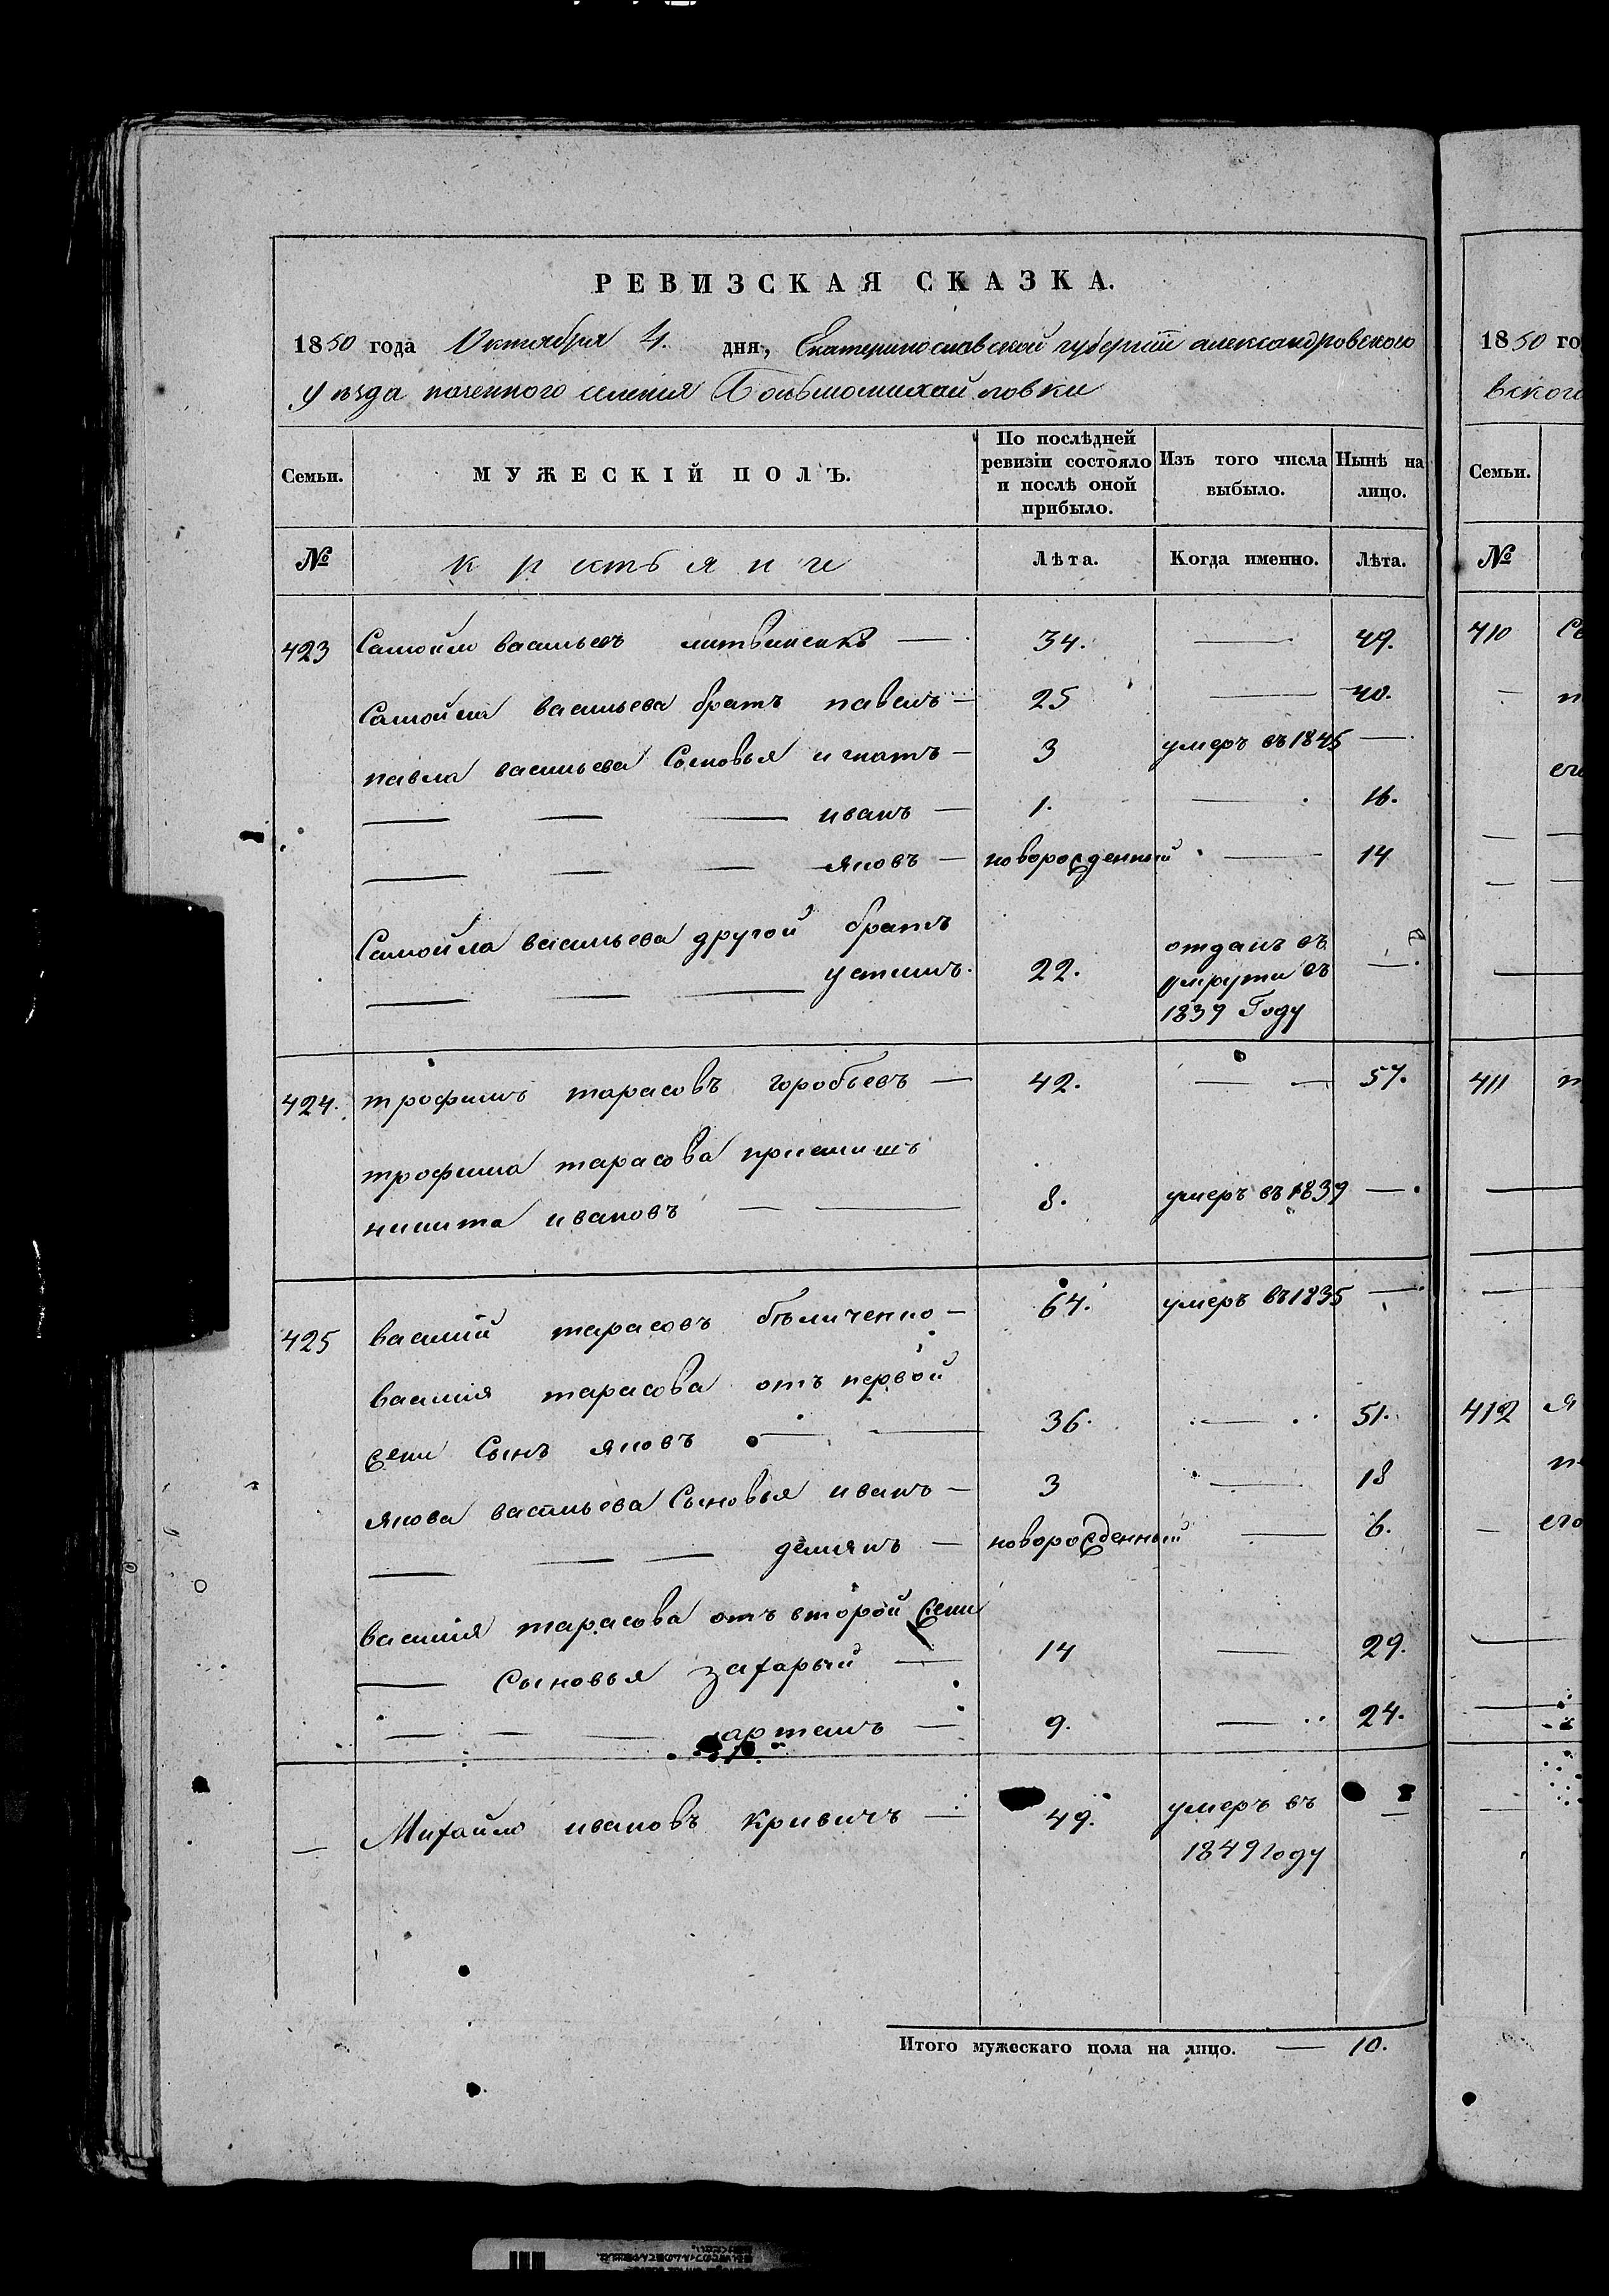 РЕВИЗСКАЯ СКАЗКА.
1850 года Октября 4. дня, Екатеринославской губернии александровского
уезда казенного селения Большомихайловки
Семьи.
МУЖЕСКІЙ ПОЛЪ.
По послѣдней
ревизіи состояло
и послѣ оной
прибыло.
Изъ того числа
выбыло.
Нынѣ на
лицо.
№
крестьяне
Лѣта.
Когда именно.
Лѣта.
423 Самойло васильевъ литвиненко — 34. — 49.
Самойла васильева братъ павелъ — 25 — 40.
павла васильева Сыновья игнатъ — 3 умеръ въ 1845 —
— — — иванъ — 1. — 16.
— — — яковъ — новорожденный — 14
Самойла васильева другой братъ
— — — устимъ. 22. отданъ въ
рекруты въ —
1839 Году
424. трофимъ тарасовъ горобьевъ — 42. — — 57.
трофима тарасова приемышъ
никита ивановъ — — 8. умеръ въ 1839 —
425 василий тарасовъ бѣличенко — 64. умеръ въ 1835 —
василия тарасова отъ первой
жены Сынъ яковъ — — 36. — 51.
якова васильева Сыновья иванъ — 3 — 18
— — — демянъ — новорожденный — 6.
василия тарасова отъ второй жены
— Сыновья захарый — 14 — 29.
— — — артемъ — 9. — 24.
— Михайло ивановъ кривичъ — 49. умеръ въ —
1849 году
Итого мужескаго пола на лицо. — 10.
1850 го
вского
Семьи.
№
410
411
412
его